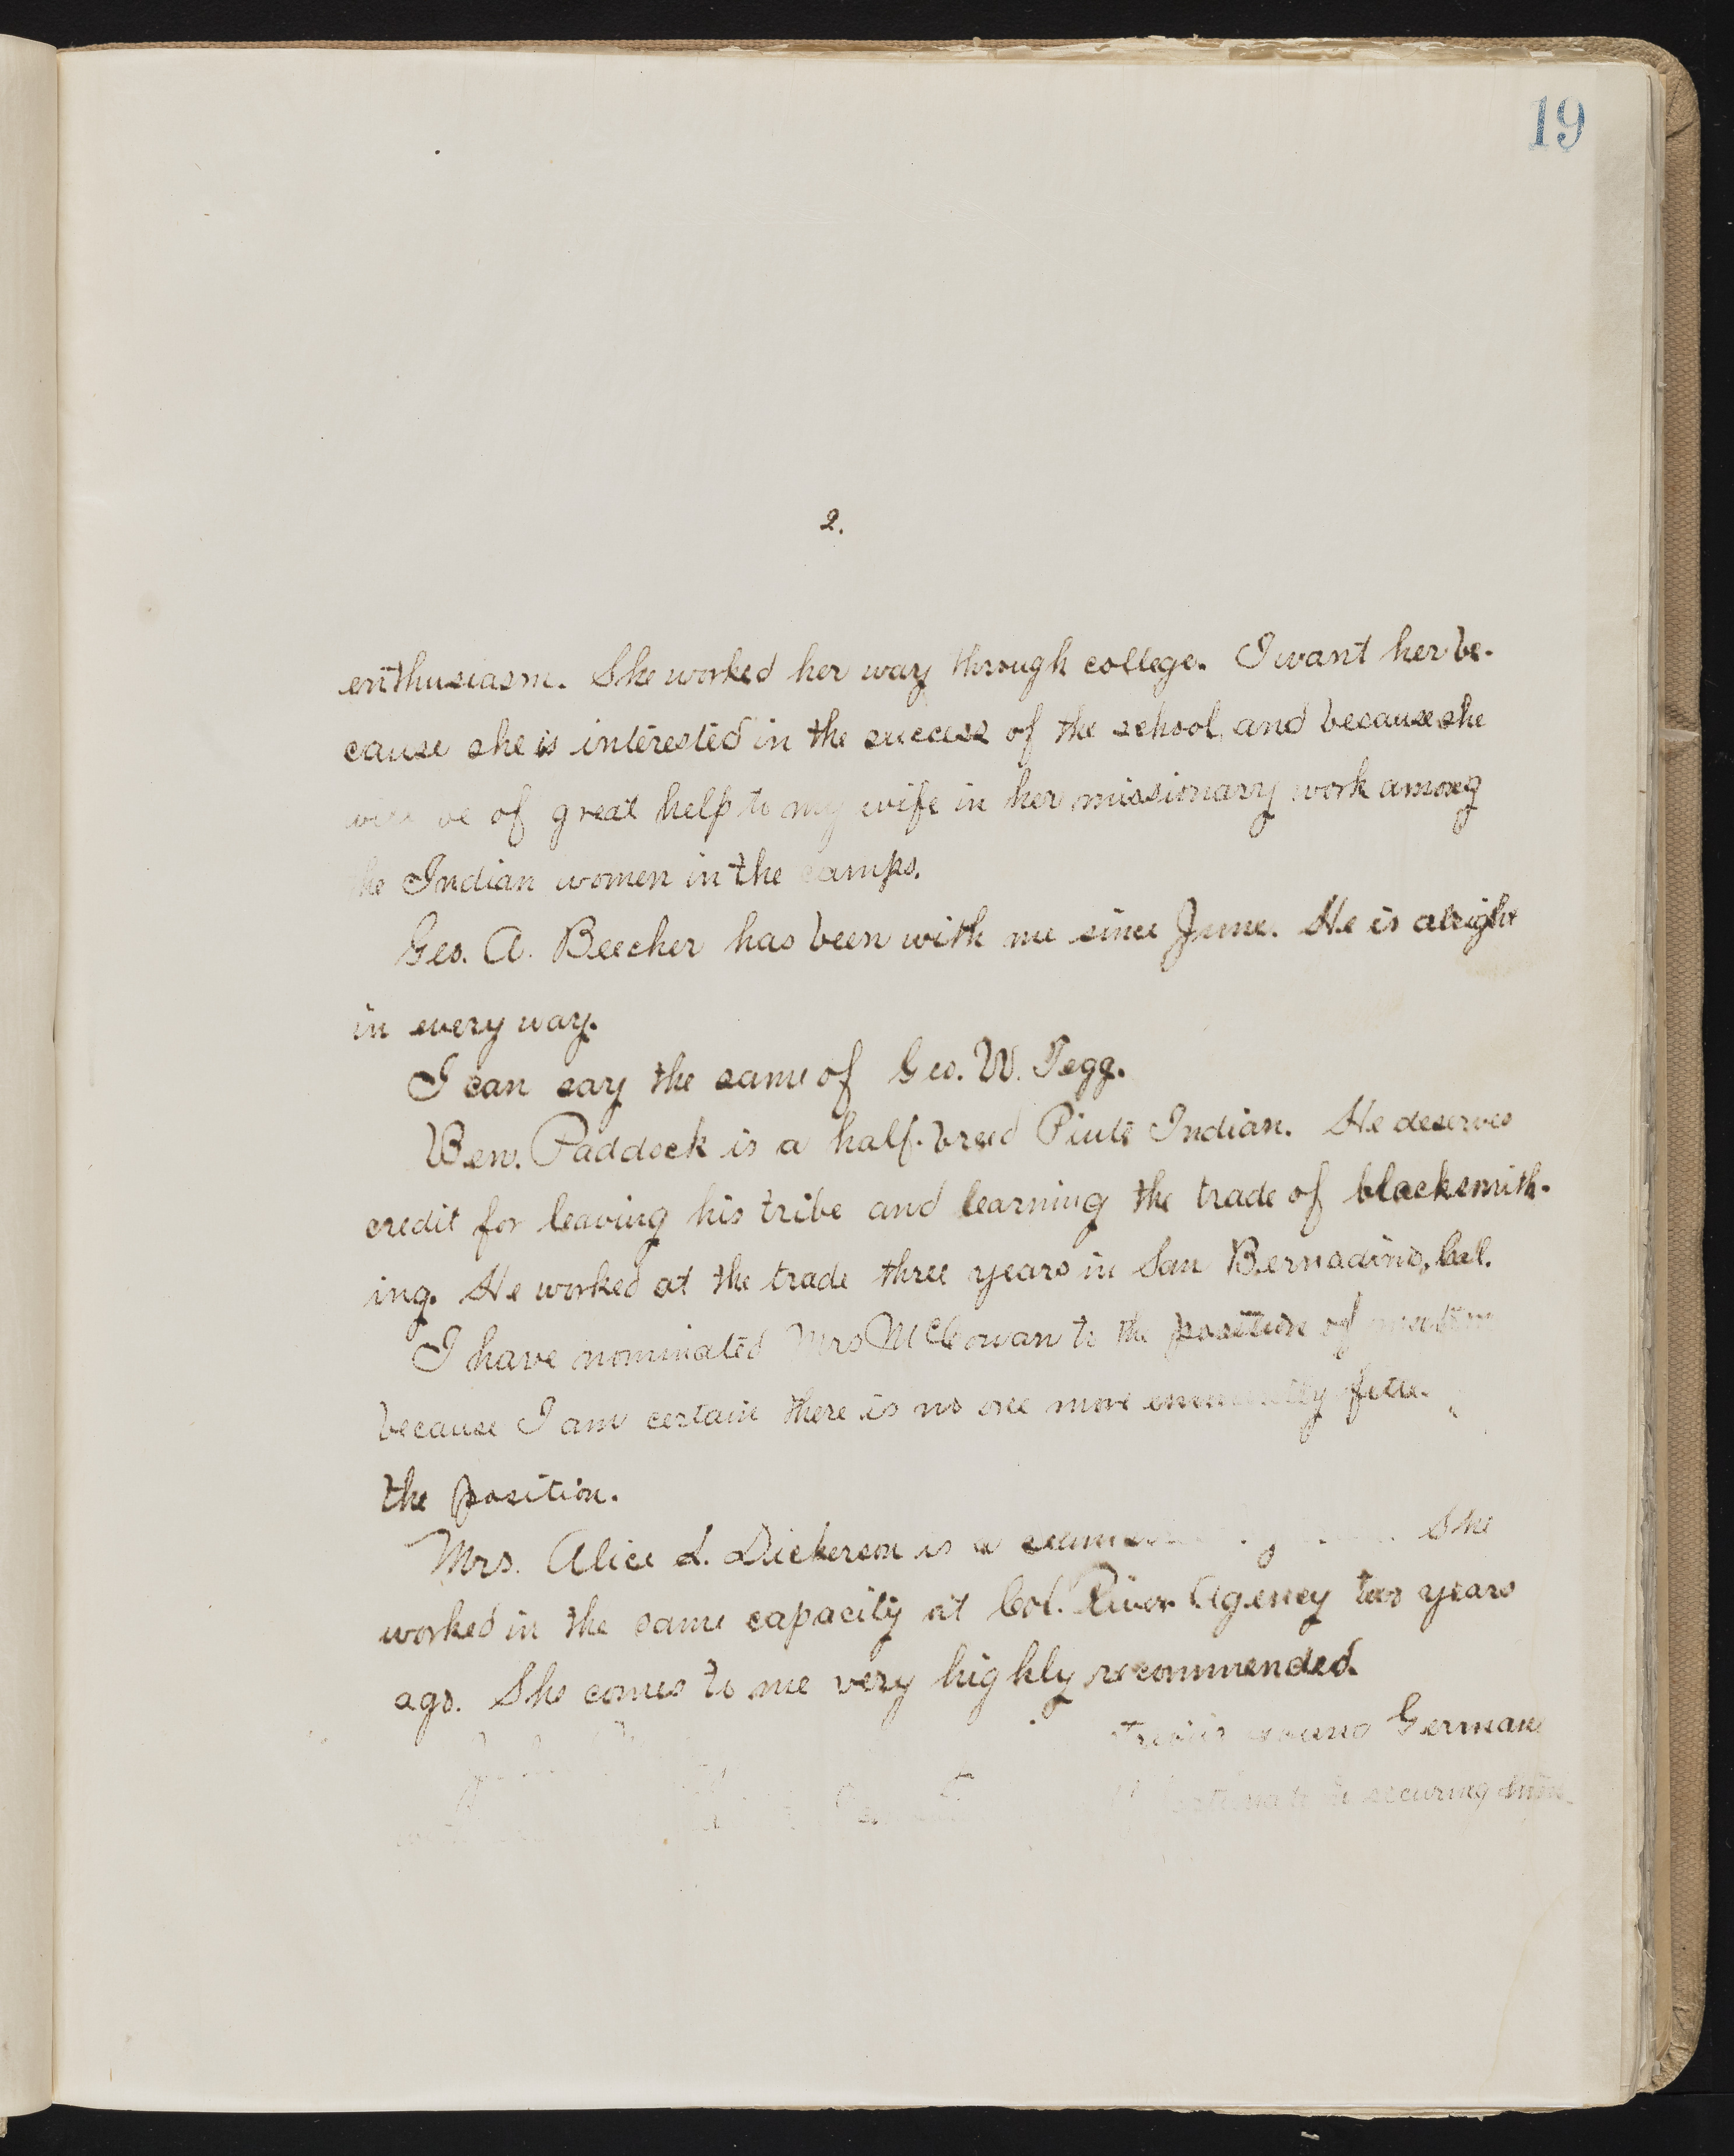 19
2.
enthusiasm. She worked her way through college. I want her be-
cause she is interested in the success of the school, and because she
will be of great help to my wife in her missionary work among
the Indian women in the camps.
Geo. A. Beecher has been with me since June. He is alright
in every way.
I can say the same of Geo. W. Pegg.
Ben. Paddock is a half-breed Piute Indian. He deserves
credit for leaving his tribe and learning the trade of blacksmith-
ing. He worked at the trade three years in San Bernadino, Cal.
I have nominated Mrs McCowan to the position of matron
because I am certain there is no one more eminently
the position.
Mrs. Alice L. Dickerson is a She
worked in the same capacity at Col. River Agency two years
ago. She comes to me very highly recommended.
young German
securing